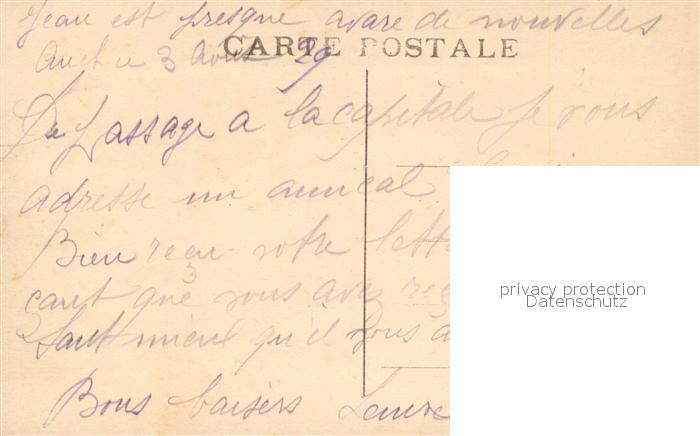 Jean est presque avare de nouvelles
CARTE POSTALE
Auch le 3 Août 29
De passage a la capitale je vous
adresse un amical
Bien reçu votre lett
que vous avez
tant mieux qu'il vous a
Bons baisers
privacy protection
Datenschutz